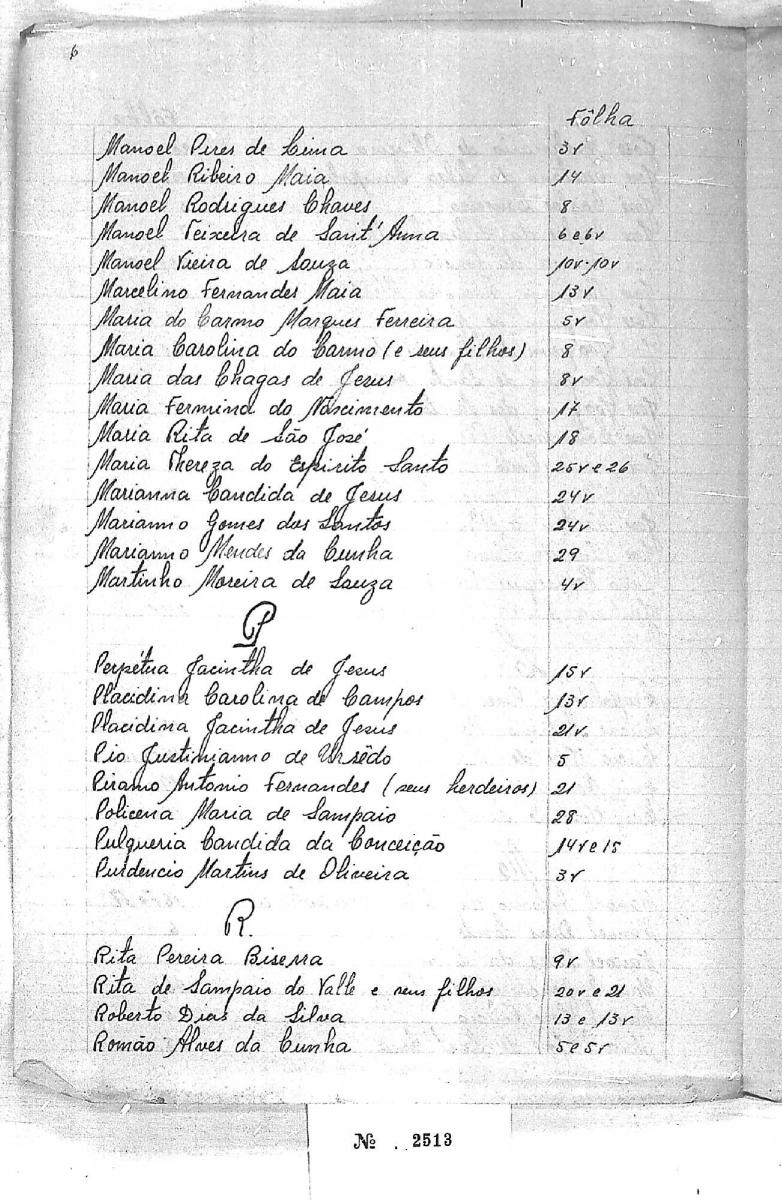 6
Fôlha
Manoel Pires de Lima 3v
Manoel Ribeiro Maia 14
Manoel Rodrigues Chaves 8
Manoel Teixeira de Sant'Anna 6 e 6v
Manoel Vieira de Souza 10v-10v
Marcelino Fernandes Maia 13v
Maria do Carmo Marques Ferreira 5v
Maria Carolina do Carmo (e seus filhos) 8
Maria das Chagas de Jesus 8v
Maria Fermina do Nascimento 17
Maria Rita de São José 18
Maria Thereza do Espirito Santo 25v e 26
Marianna Candida de Jesus 24v
Marianno Gomes dos Santos 24v
Marianno Mendes da Cunha 29
Martinho Moreira de Souza 4v
P
Perpétua Jacintha de Jesus 15v
Placidina Carolina de Campos 13v
Placidina Jacintha de Jesus 21v
Pio Justinianno de Ursêdo 5
Piramo Antonio Fernandes (seus herdeiros) 21
Policena Maria de Sampaio 28
Pulqueria Candida da Conceição 14v e 15
Purdencio Martins de Oliveira 3v
R.
Rita Pereira Biserra 9v
Rita de Sampaio do Valle e seus filhos 20v e 21
Roberto Dias da Silva 13 e 13v
Romão Alves da Cunha 5 e 5v
Nº 2513